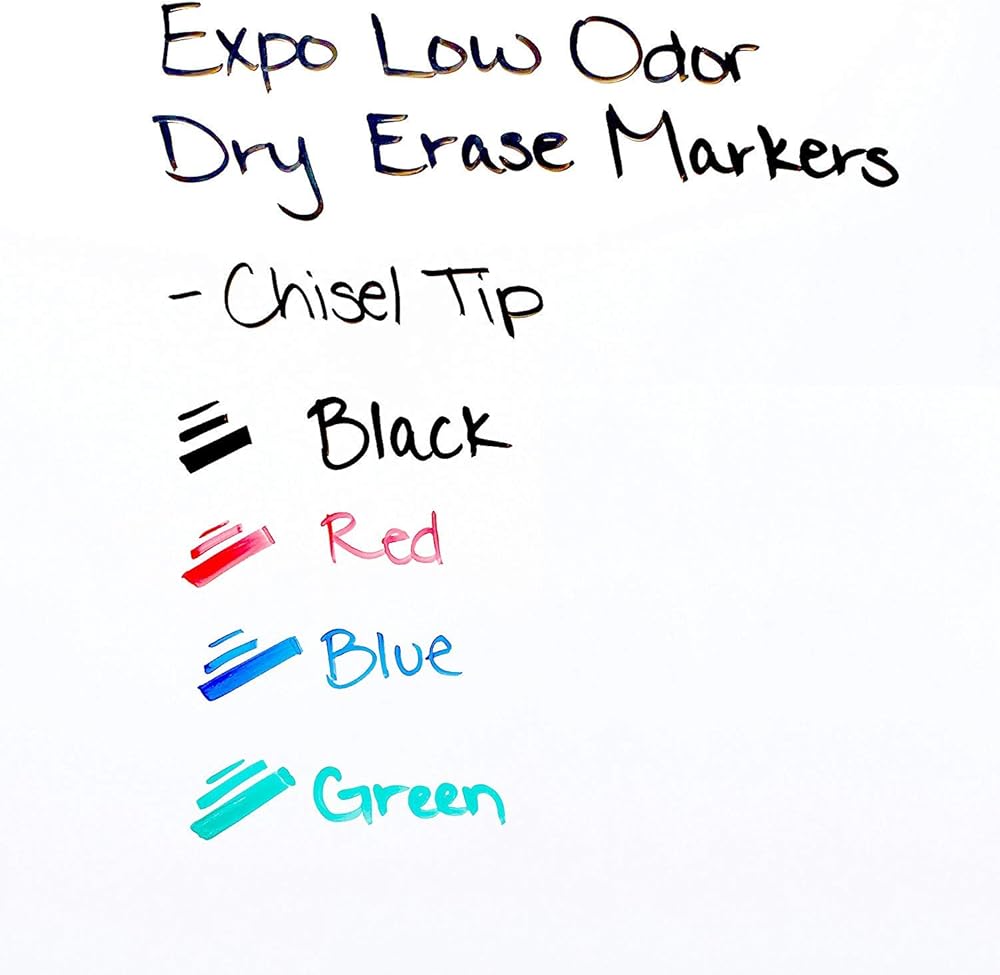 Expo Low Odor
Dry Erase Markers
- Chisel Tip
Black
Red
Blue
Green